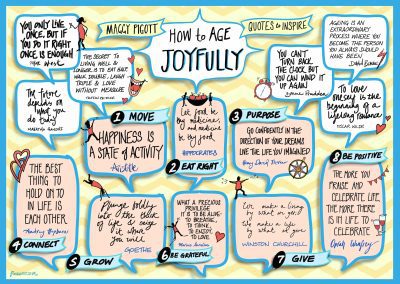 YOU ONLY LIVE
ONCE, BUT IF
YOU DO IT RIGHT
ONCE IS ENOUGH
Mae West
MAGGY PIGOTT
QUOTES to INSPIRE
HOW to AGE
JOYFULLY
AGEING IS AN
EXTRAORDINARY
PROCESS WHERE YOU
BECOME THE PERSON
YOU ALWAYS SHOULD
HAVE BEEN
David Bowie
THE SECRET TO
LIVING WELL &
LONGER IS TO EAT HALF,
WALK DOUBLE, LAUGH
TRIPLE & LOVE
WITHOUT MEASURE
YOU CAN'T
TURN BACK
THE CLOCK, BUT
YOU CAN WIND IT
UP AGAIN
Bonnie Prudden
The future
depends on
what you
do today
MAHATMA GANDHI
To love
oneself is the
beginning of a
lifelong romance
OSCAR WILDE
1 MOVE
HAPPINESS IS
A STATE of ACTIVITY
Aristotle
Let food be
thy medicine
and medicine
be thy food
HIPPOCRATES
2 EAT RIGHT
3 PURPOSE
GO CONFIDENTLY IN THE
DIRECTION OF YOUR DREAMS
LIVE THE LIFE YOU IMAGINED
Henry David Thoreau
THE BEST
THING TO
HOLD ON TO
IN LIFE IS
EACH OTHER.
Audrey Hepburn
4 CONNECT
Plunge boldly
into the thick
of life, & seize
it where
you will
GOETHE
5 GROW
WHAT A PRECIOUS
PRIVILEGE
IT IS TO BE ALIVE
TO BREATHE,
TO THINK,
TO ENJOY,
TO LOVE.
Marcus Aurelius
6 BE GRATEFUL
We make a living
by what we get,
we make a life
by what we give
WINSTON CHURCHILL
7 GIVE
8 BE POSITIVE
THE MORE YOU
PRAISE AND
CELEBRATE LIFE,
THE MORE THERE
IS IN LIFE TO
CELEBRATE
Oprah Winfrey